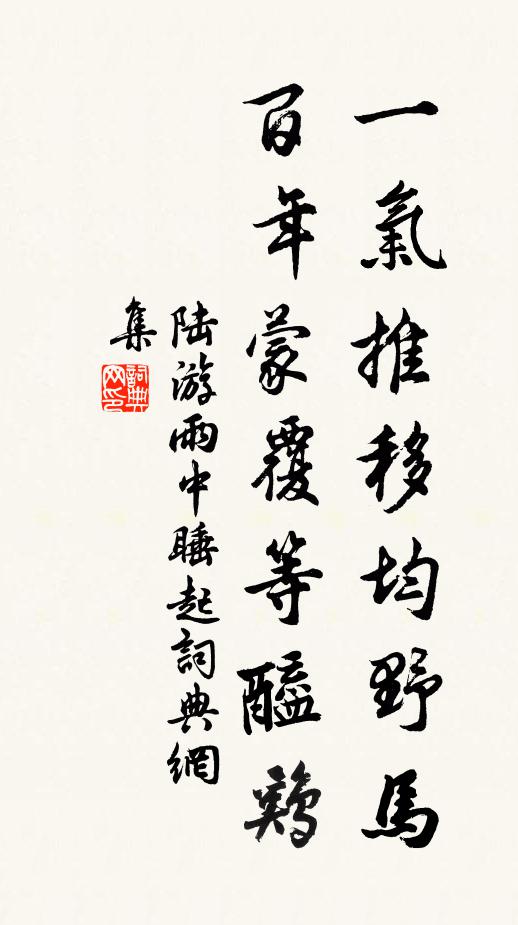 一氣推移均野馬
百年蒙覆等醯鷄
陸游雨中睡起詞典網
集
詞典網印